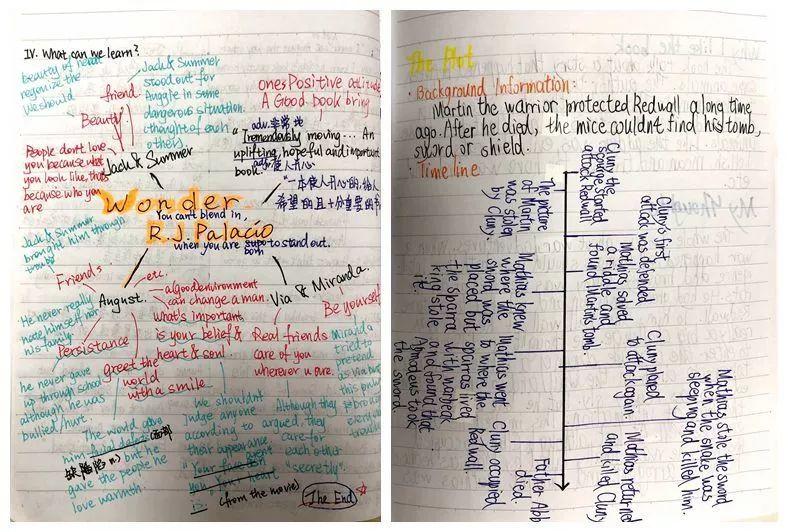 IV. What can we learn?
beauty of heart
regonize the
We should
friend.
Beauty
Jack & Summer
stood out for
Auggie in some
dangerous situation.
(thought of each
other)
ones Positive attitude
A Good book bring
adv.非常地
"Tremendously moving... An
uplifting, hopeful and important
book."
adj.使人开心
"一本使人开心的,给人
希望的且十分重要的书
People don't love
you because what
you look like, that's
because who you
are
Jack & Summer
Wonder
You can't blend in,
R.J. Palacio
when you are to stand out.
born
Jack & Summer
brought him through
trouble
Friends
August.
etc.
a good environment
can change a man.
what's important
is your belief &
heart & soul.
Via & Miranda.
Be yourself
He never really
hate himself nor
his family.
Persistance
he never gave
up through school
although he was
bullied/hurt.
greet the
world
with a smile
Real friends
care of you
wherever u are.
Miranda
tried to
pretend
as via but
The world gave
him facial defect (面部
缺陷 n.) but he
gave the people he
love warmth.
We shouldn't
Judge anyone
according to
their appearance
"Your face
you Your heart
is."
(from the movie)
Although they
argued, they
care for
each other
"secretly".
The End
The Plot
· Background Information:
Martin the warrior protected Redwall a long time
ago. After he died, the mice couldn't find his tomb,
sword or shield.
· Time line
Cluny the
scourge started
attack Redwall
The picture
of Martin
was stolen
by Cluny
Cluny's first
attack was defended
Mathias saved
a riddle and
found Martin's tomb.
Mathias knew
where the
sword was
placed but
the sparra
king stole
it.
Cluny planed
to attack again.
Mathias went
to where the
sparras lived
with warbeak
and found that
Asmodeus took
the sword
Mathias stole the sword
when the snake was
sleeping and killed him.
Cluny occupied
Redwall
Mathias returnd
and killed Cluny
Father Abb
died.